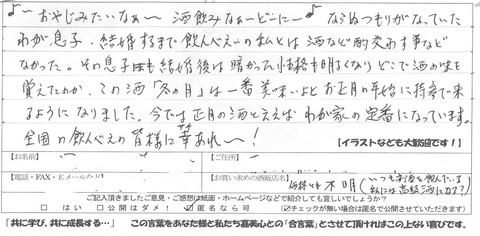 ♪〜おやじみたいなぁ〜 酒飲みなぁーどーにー〜♪ ならぬつもりがなっていた
わが息子。結婚するまで飲んべえーの私とは酒など酌交わす事など
なかった。その息子も結婚後は暗かった性格も明るくなりどこで酒の味を
覚えたのか、この酒「冬の月」は一番美味いよとお正月の年始に持参で来
るようになりました。今では正月の酒と言えばわが家の定番になっています。
全国の飲んべえの皆様に幸あれ〜!
【イラストなども大歓迎です!】
【お名前】 【ご住所】
【電話・FAX・Eメールなど】 【お買い求めの酒販店名】
価格は不明(いつも
私には高級酒になる?)
ご記入頂きましたご意見・ご感想は紙面・ホームページなどで紹介しても宜しいでしょうか?
□はい □公開はダメ! ☑匿名なら可 (☑チェックが無い場合は匿名で公開させていただきます)
「共に学び、共に成長する…」 この言葉をあなた様と私たち嘉美心との「合言葉」とさせて頂ければこの上ない喜びです。